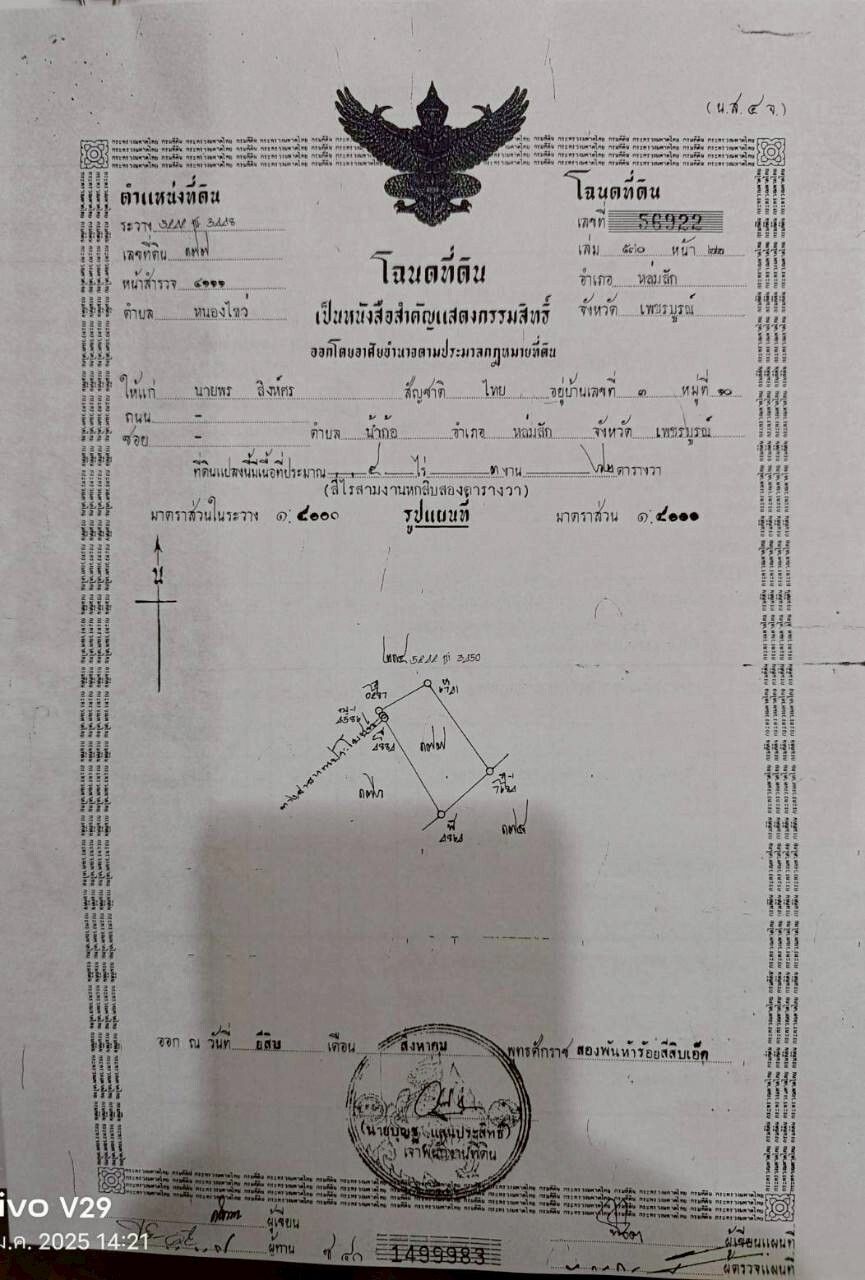 (น.ส. ๔ จ.)
ตำแหน่งที่ดิน
ระวาง
เลขที่ดิน ๑๗๗
หน้าสำรวจ ๔๑๑๑
ตำบล หนองไขว่
โฉนดที่ดิน
เลขที่ 56922
เล่ม ๕๗๐ หน้า ๒๒
อำเภอ หล่มสัก
จังหวัด เพชรบูรณ์
โฉนดที่ดิน
เป็นหนังสือสำคัญแสดงกรรมสิทธิ์
ออกโดยอาศัยอำนาจตามประมวลกฎหมายที่ดิน
ให้แก่ นายพร สิงห์ศร สัญชาติ ไทย อยู่บ้านเลขที่ ๓ หมู่ที่ ๑๐
ถนน -
ซอย - ตำบล น้ำก้อ อำเภอ หล่มสัก จังหวัด เพชรบูรณ์
ที่ดินแปลงนี้มีเนื้อที่ประมาณ ๔ ไร่ ๓ งาน ๖๒ ตารางวา
(สี่ไร่สามงานหกสิบสองตารางวา)
มาตราส่วนในระวาง ๑:๔๐๐๐ รูปแผนที่ มาตราส่วน ๑:๔๐๐๐
น
๑๗๗
ทางสาธารณประโยชน์
ออก ณ วันที่ ยี่สิบ เดือน สิงหาคม พุทธศักราช สองพันห้าร้อยสี่สิบเอ็ด
เจ้าพนักงานที่ดิน
ผู้เขียน
ผู้ทาน
1499983
ผู้เขียนแผนที่
ผู้ตรวจแผนที่
vivo V29
ม.ค. 2025 14:21